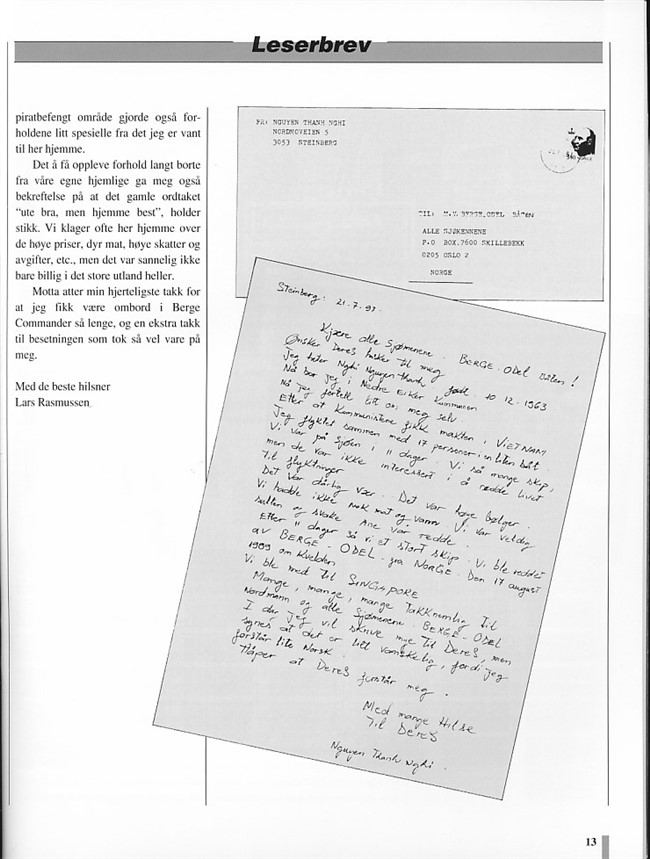 Leserbrev
piratbefengt område gjorde også for-
holdene litt spesielle fra det jeg er vant
til her hjemme.
Det å få oppleve forhold langt borte
fra våre egne hjemlige ga meg også
bekreftelse på at det gamle ordtaket
“ute bra, men hjemme best”, holder
stikk. Vi klager ofte her hjemme over
de høye priser, dyr mat, høye skatter og
avgifter, etc., men det var sannelig ikke
bare billig i det store utland heller.
Motta atter min hjerteligste takk for
at jeg fikk være ombord i Berge
Commander så lenge, og en ekstra takk
til besetningen som tok så vel vare på
meg.
Med de beste hilsner
Lars Rasmussen
FRA: NGUYEN THANH NGHI
NORDMOVEIEN 5
3053 STEINBERG
TIL: M.V BERGE.ODEL BÅTEN
ALLE SJØKENNENE
P.O BOX.7600 SKILLEBEKK
0205 OSLO 2
NORGE
Steinberg: 21-7.93.
Kjære alle Sjømenene. BERGE-ODEL båten!
Ønsker DereS husker til meg
Jeg heter Nghi Nguyen-Thanh født 10 12-1963
Nå bor jeg i Nedre Eiker Kommunen
Nå jeg fortell litt om meg selv.
Etter at Kommunistene fikk makten i VIETNAM
Jeg flyktet sammen med 17 personer i en liten båt.
Vi var på sjøen i 11 dager. Vi så mange skip,
men de var ikke interessert i å redde livet
til flyktninger
Det var dårlig vær. Det var høye bølger.
Vi hadde ikke nok mat og vann Vi var veldig
sulten og svake var redde.
Etter 11 dager så vi et stort skip. Vi ble reddet
av BERGE-ODEL fra NORGE. Den 17 august
1989 om Kvelden
Vi ble med til SINGAPORE
Mange, mange, mange takknemlig til
Nordmann og alle Sjømenene BERGE-ODEL
I dag jeg vil skrive mye til DereS, men
synes at det er litt vanskelig, fordi jeg
forstår lite Norsk.
Håper at DereS forstår meg.
Med mange Hilse
Til DereS
Nguyen Thanh Nghi.
13